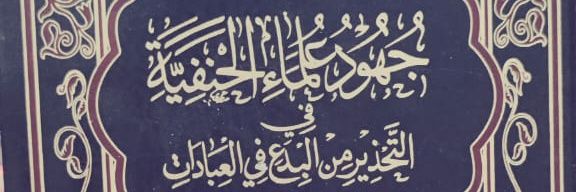 جُهُودُ عُلَمَاءِ الْحَنَفِيَّةِ
فِي
التَّحْذِيرِ مِنَ الْبِدَعِ فِي الْعِبَادَاتِ